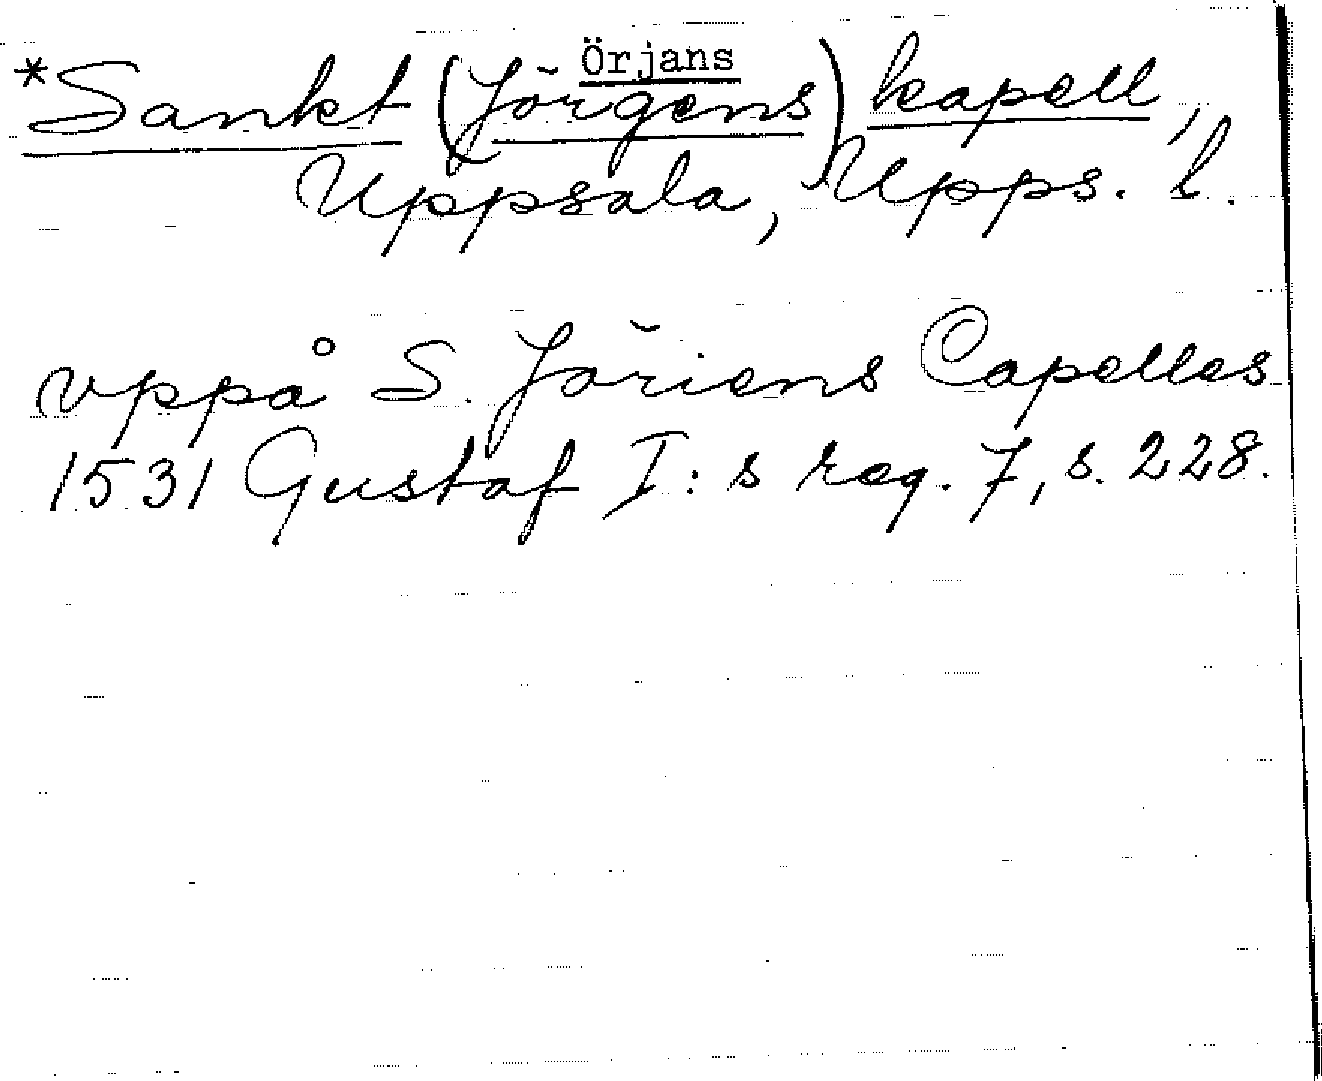 Örjans
*Sankt (Jörgens) kapell,
Uppsala, Upps. l.
vppå S. Jöriens Capelles
1531 Gustaf I:s reg. 7, s. 228.